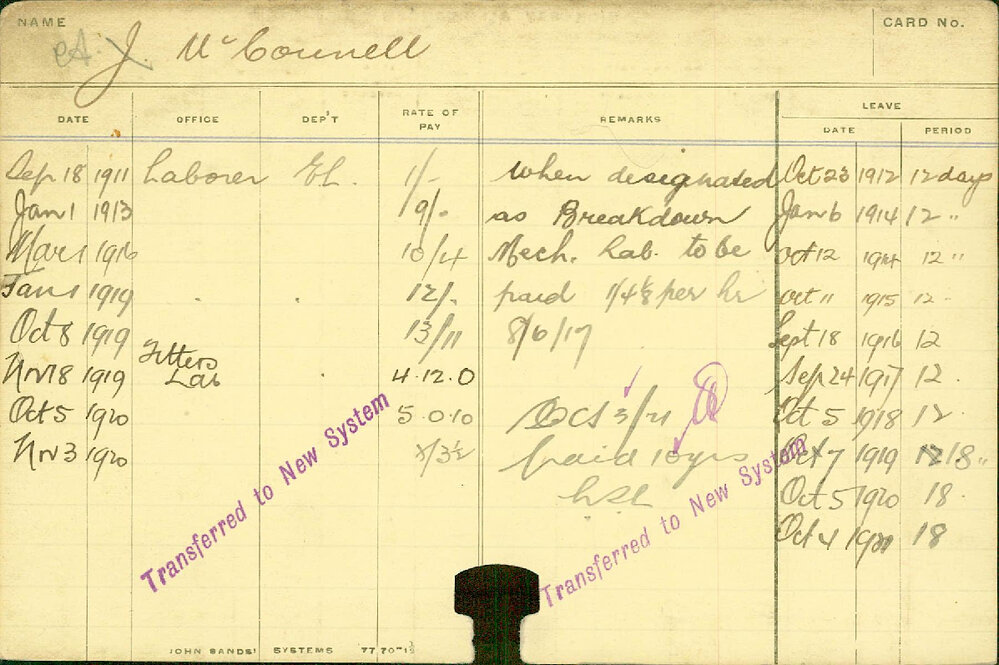 NAME
CARD No.
J. McConnell
LEAVE
DATE OFFICE DEP'T RATE OF PAY REMARKS DATE PERIOD
Sep 18 1911 Laborer El. 1/- when designated Oct 23 1912 12 days
Jan 1 1913 9/- as Breakdown Jan 6 1914 12 "
Mar 1 1916 10/4 Mech. Lab. to be Oct 12 1914 12 "
Jan 1 1919 12/- paid 1/4⅛ per hr Oct 11 1915 12
Oct 8 1919 13/11 8/6/17 Sept 18 1916 12
Nov 18 1919 Fitters Lab 4.12.0 Sep 24 1917 12
Oct 5 1920 5.0.10 Oct 3/21 Oct 5 1918 12
Nov 3 1920 /3½ paid 10 yrs Oct 7 1919 18 "
LSL Oct 5 1920 18
Oct 4 18
Transferred to New System
Transferred to New System
JOHN SANDS' SYSTEMS